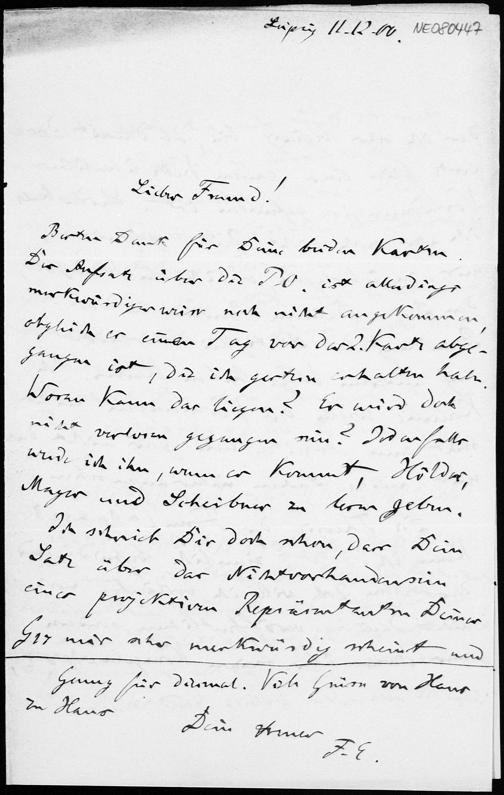 Leipzig 11.12.00. NE080447
Lieber Freund!
Besten Dank für Deine beiden Karten.
Der Aufsatz über die P.O. ist allerdings
merkwürdigerweise noch nicht angekommen,
obgleich er einen Tag vor der 2. Karte abge-
gangen ist, die ich gestern erhalten habe.
Woran kann das liegen? Er wird doch
nicht verloren gegangen sein? Jedenfalls
werde ich ihn, wenn er kommt, Hölder,
Mayer und Scheibner zu lesen geben.
Ich schrieb Dir doch schon, dass Dein
Satz über das Nichtvorhandensein
eines projektiven Repräsentanten Deiner
mir sehr merkwürdig scheint und
Genug für diesmal. Viele Grüsse von Haus
zu Haus
Dein treuer
F. E.